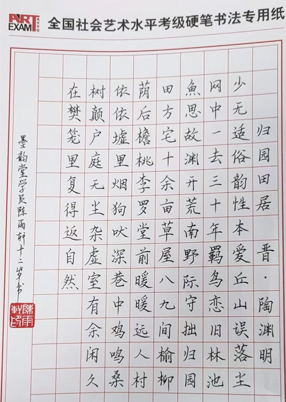 ART
EXAM
全国社会艺术水平考级硬笔书法专用纸
归园田居 晋·陶渊明
少无适俗韵性本爱丘山误落尘
网中一去三十年羁鸟恋旧林池
魚思故渊开荒南野际守拙归园
田方宅十余亩草屋八九间榆柳
荫后檐桃李罗堂前暖暖远人村
依依墟里烟狗吠深巷中鸡鸣桑
树颠户庭无尘杂虚室有余闲久
在樊笼里复得返自然
墨韵堂学员陈雨轩十二岁书